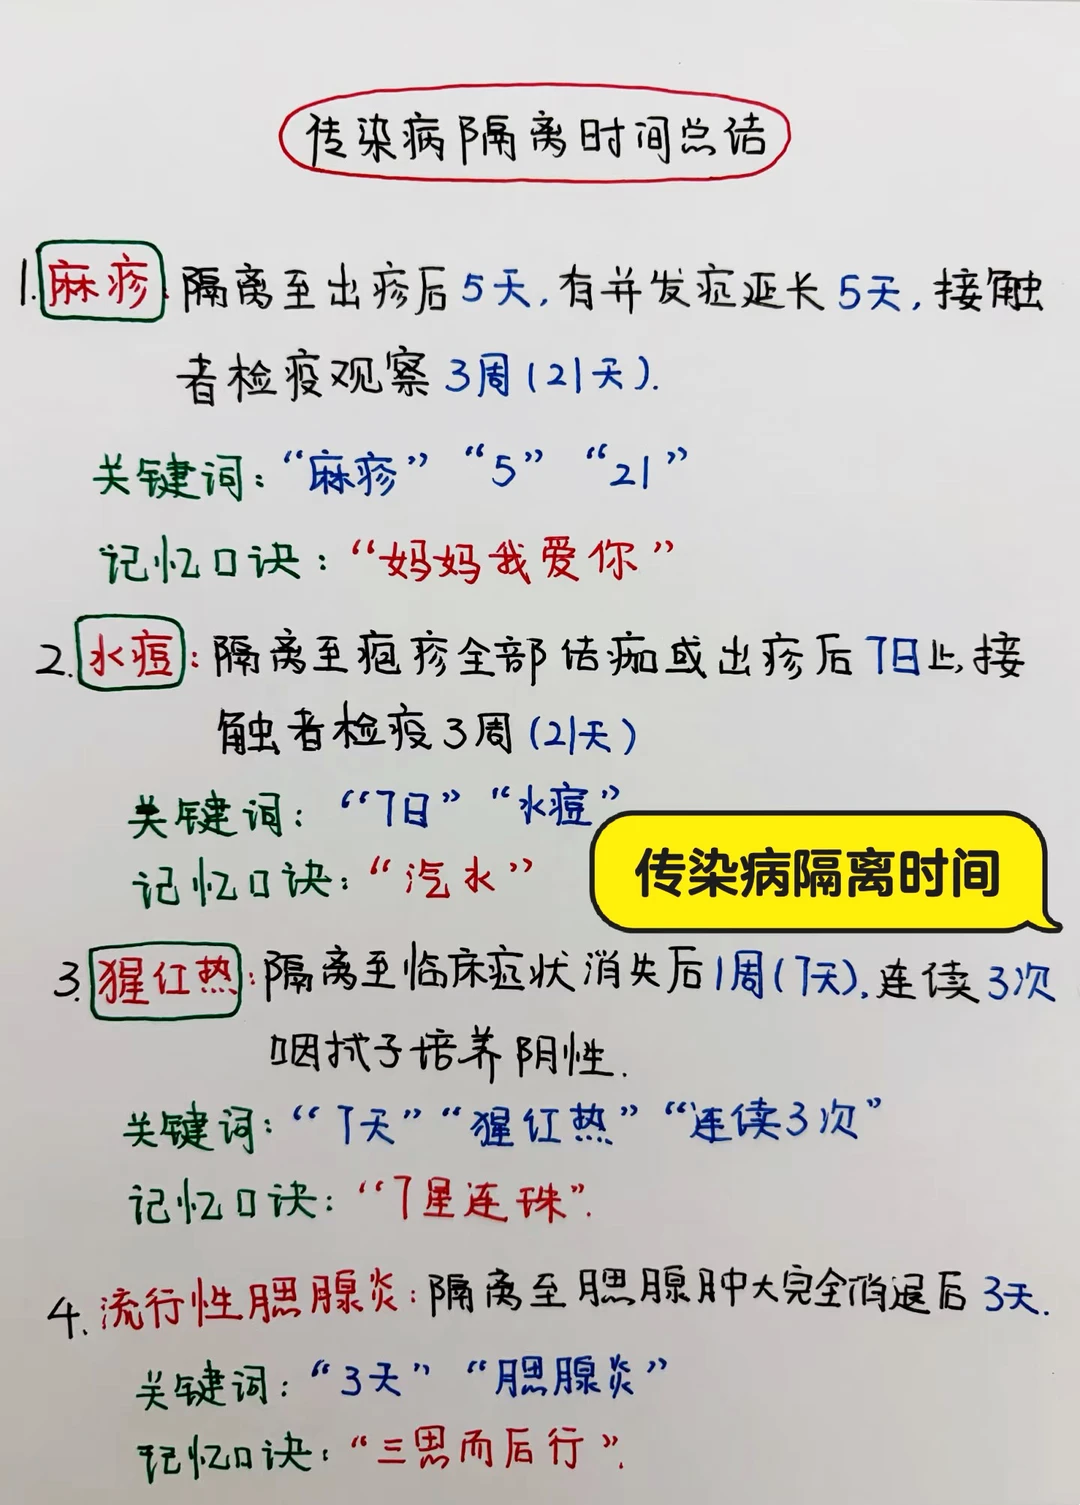 传染病隔离时间总结
1.麻疹:隔离至出疹后5天,有并发症延长5天,接触
者检疫观察3周(21天).
关键词:“麻疹” “5” “21”
记忆口诀:“妈妈我爱你”
2.水痘:隔离至疱疹全部结痂或出疹后7日止,接
触者检疫3周(21天)
关键词:“7日” “水痘”
记忆口诀:“汽水”
传染病隔离时间
3.猩红热:隔离至临床症状消失后1周(7天),连续3次
咽拭子培养阴性.
关键词:“7天” “猩红热” “连续3次”
记忆口诀:“7星连珠”.
4.流行性腮腺炎:隔离至腮腺肿大完全消退后3天.
关键词:“3天” “腮腺炎”
记忆口诀:“三思而后行”.